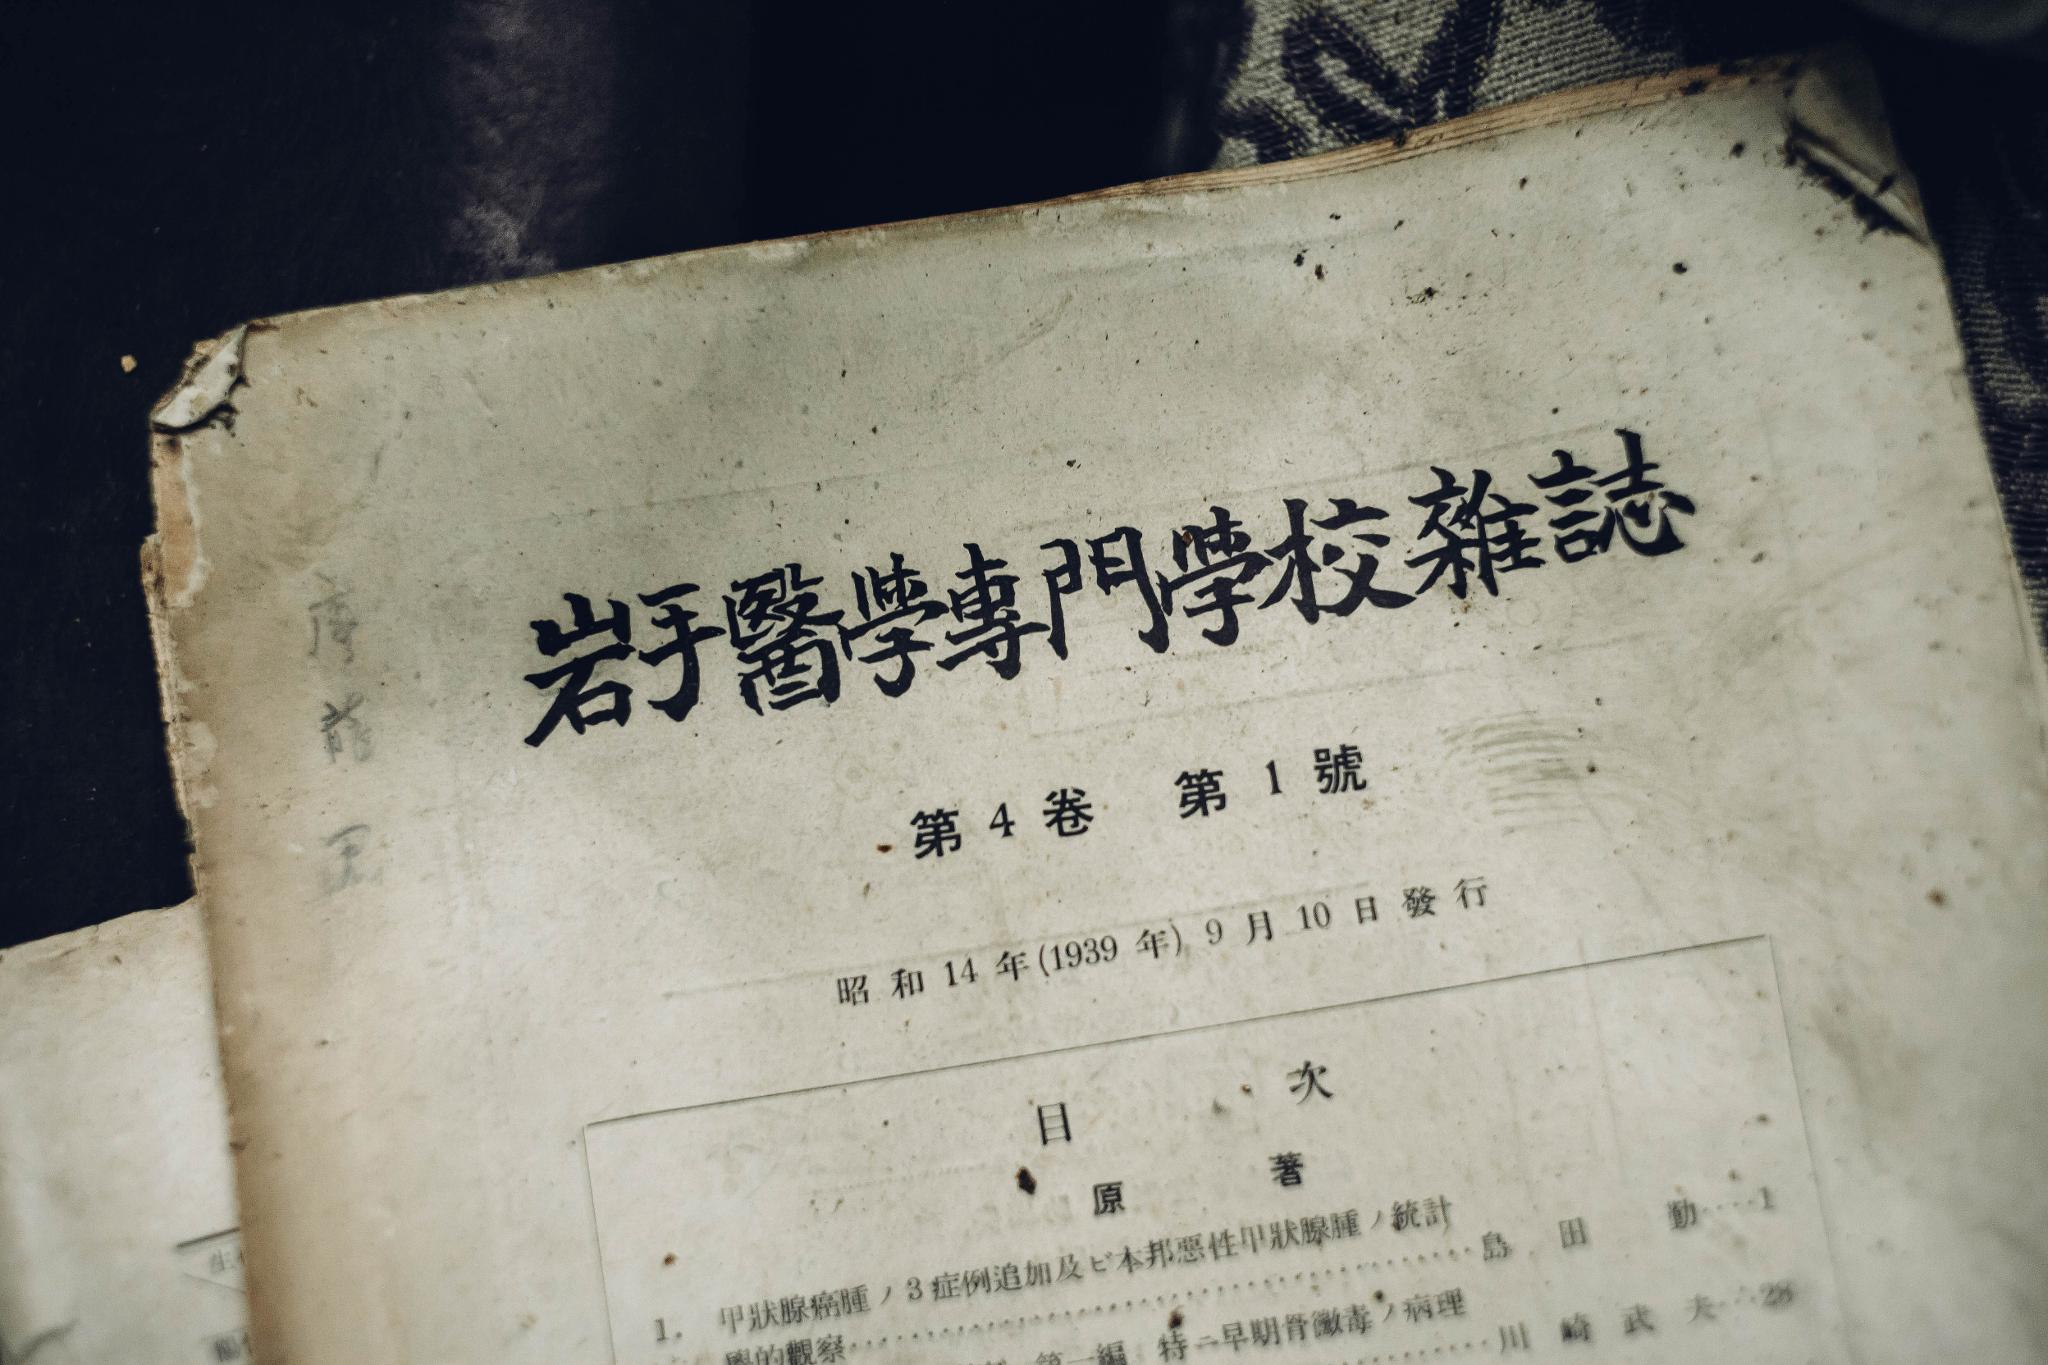 岩手醫學專門學校雜誌
第4卷 第1號
昭和14年(1939年)9月10日發行
目次
原著
1. 甲狀腺癌腫ノ3症例追加及ビ本邦惡性甲狀腺腫ノ統計
學的觀察‥‥‥‥‥‥‥‥‥‥‥‥‥‥‥‥島田 勳‥‥1
第一編 特ニ早期骨黴毒ノ病理
川崎武夫‥‥28